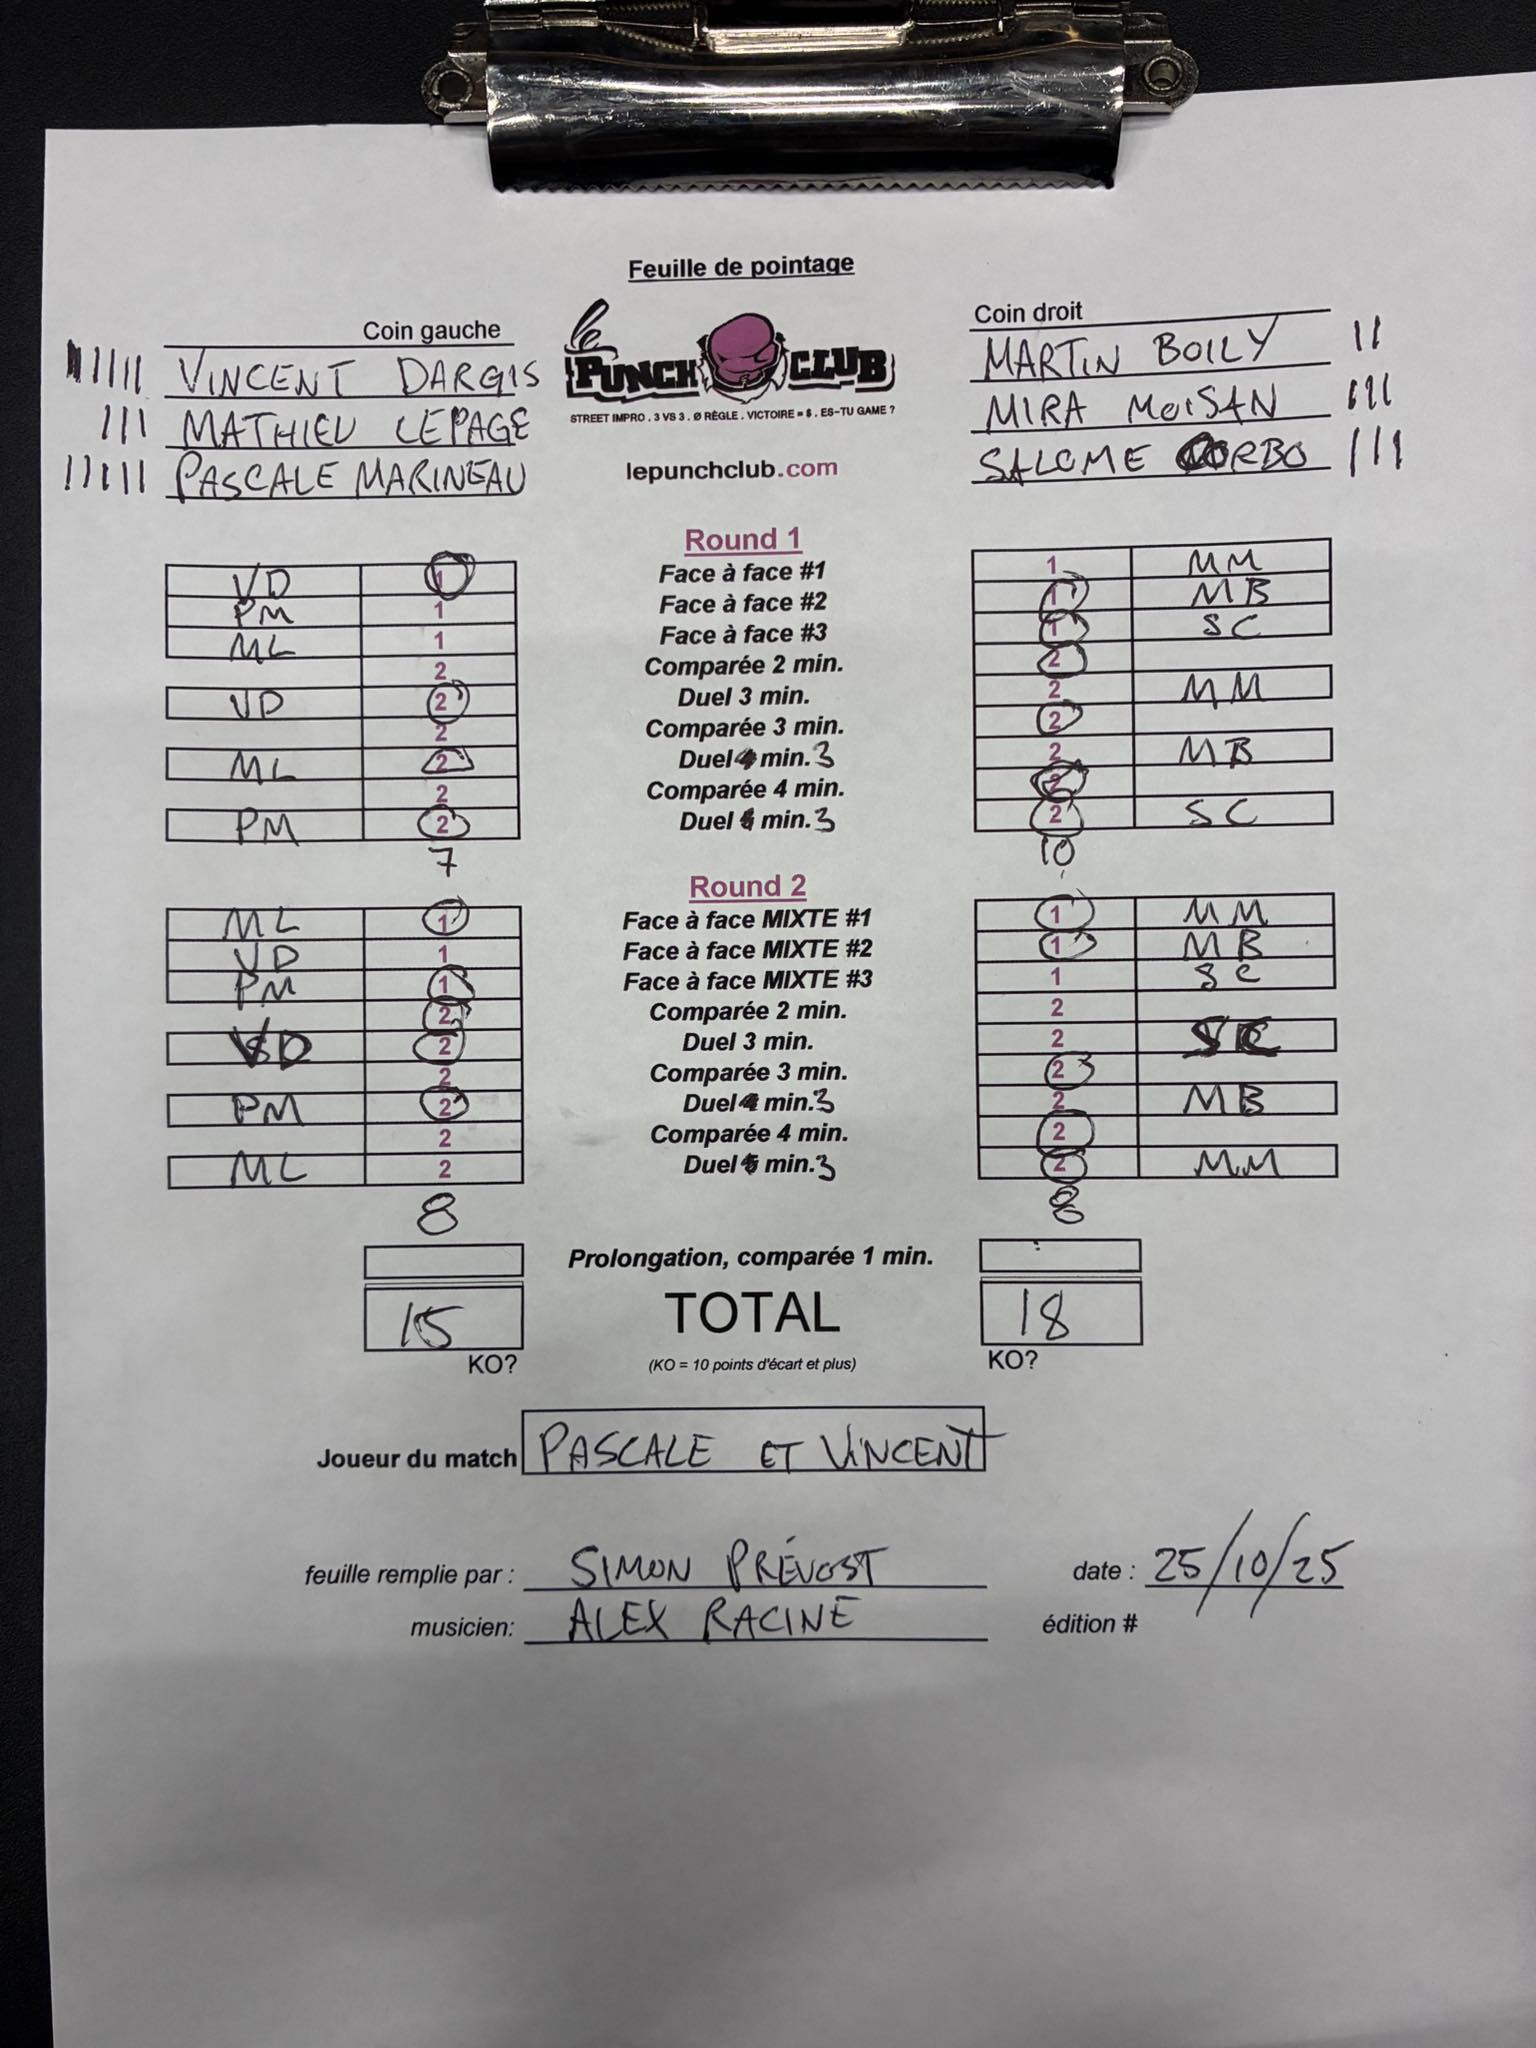 Feuille de pointage
Coin gauche
Coin droit
le PUNCH CLUB
STREET IMPRO . 3 VS 3 . Ø RÈGLE . VICTOIRE = $ . ES-TU GAME ?
lepunchclub.com
VINCENT DARGIS
MATHIEU LEPAGE
PASCALE MARINEAU
MARTIN BOILY
MIRA MOISAN
SALOME CORBO
Round 1
VD 1 Face à face #1 1 MM
PM 1 Face à face #2 1 MB
ML 1 Face à face #3 1 SC
2 Comparée 2 min. 2
VD 2 Duel 3 min. 2 MM
2 Comparée 3 min. 2
ML 2 Duel 4 min. 3 2 MB
2 Comparée 4 min. 2
PM 2 Duel 5 min. 3 2 SC
7 10
Round 2
ML 1 Face à face MIXTE #1 1 MM
VD 1 Face à face MIXTE #2 1 MB
PM 1 Face à face MIXTE #3 1 SC
2 Comparée 2 min. 2
VD 2 Duel 3 min. 2 SC
2 Comparée 3 min. 2
PM 2 Duel 4 min. 3 2 MB
2 Comparée 4 min. 2
ML 2 Duel 5 min. 3 2 MM
8 8
Prolongation, comparée 1 min.
15 TOTAL 18
KO? (KO = 10 points d'écart et plus) KO?
Joueur du match PASCALE ET VINCENT
feuille remplie par : SIMON PRÉVOST date : 25/10/25
musicien: ALEX RACINE édition #